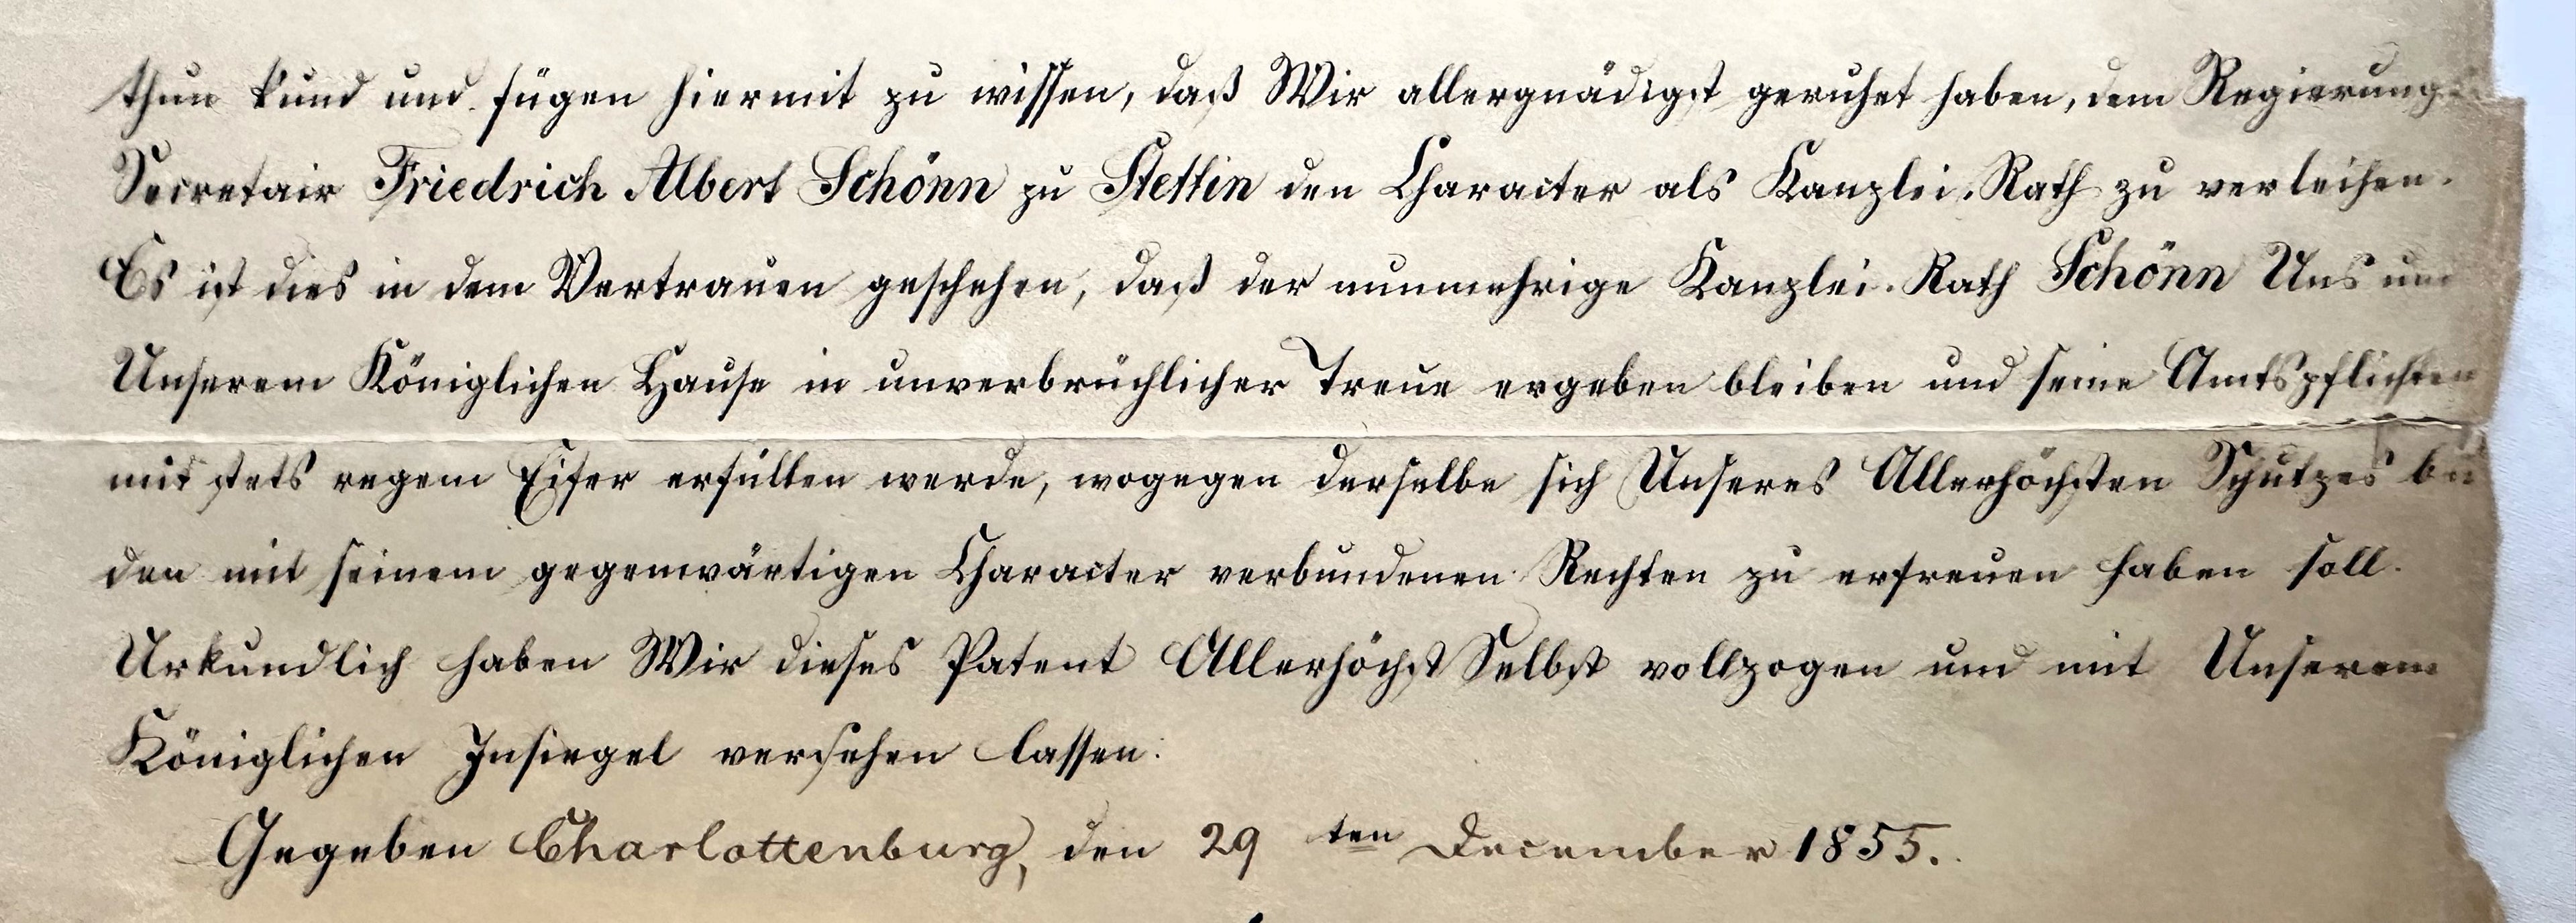 thun kund und fügen hiermit zu wissen, daß Wir allergnädigst geruhet haben, dem Regierungs
Secretair Friedrich Albert Schönn zu Stettin den Character als Kanzlei-Rath zu verleihen.
Es ist dies in dem Vertrauen geschehen, daß der nunmehrige Kanzlei-Rath Schönn Uns und
Unserem Königlichen Hause in unverbrüchlicher Treue ergeben bleiben und seine Amtspflichten
mit stets regem Eifer erfüllen werde, wogegen derselbe sich Unseres Allerhöchsten Schutzes bei
den mit seinem gegenwärtigen Character verbundenen Rechten zu erfreuen haben soll.
Urkundlich haben Wir dieses Patent Allerhöchst Selbst vollzogen und mit Unserem
Königlichen Insiegel versehen lassen.
Gegeben Charlottenburg, den 29 ten December 1855.